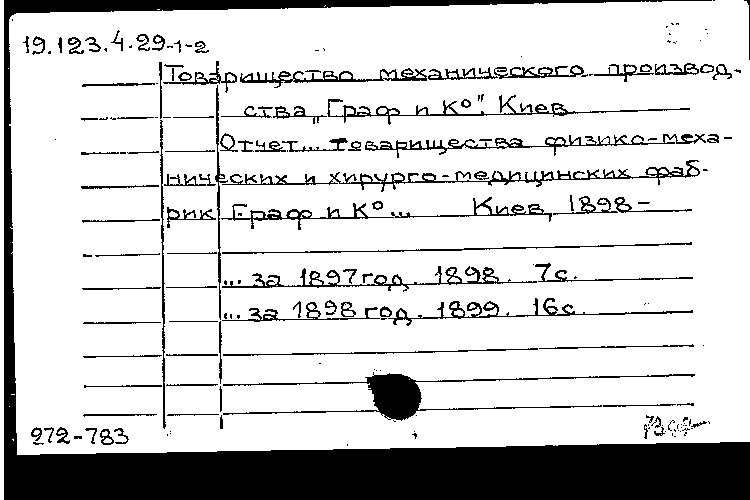 19.123.4.29-1-2
Товарищество механического производ-
ства „Граф и К°". Киев
Отчет... товарищества физико-меха-
нических и хирурго-медицинских фаб-
рик Граф и К°... Киев, 1898-
... за 1897 год. 1898. 7с.
... за 1898 год. 1899. 16с.
272-783